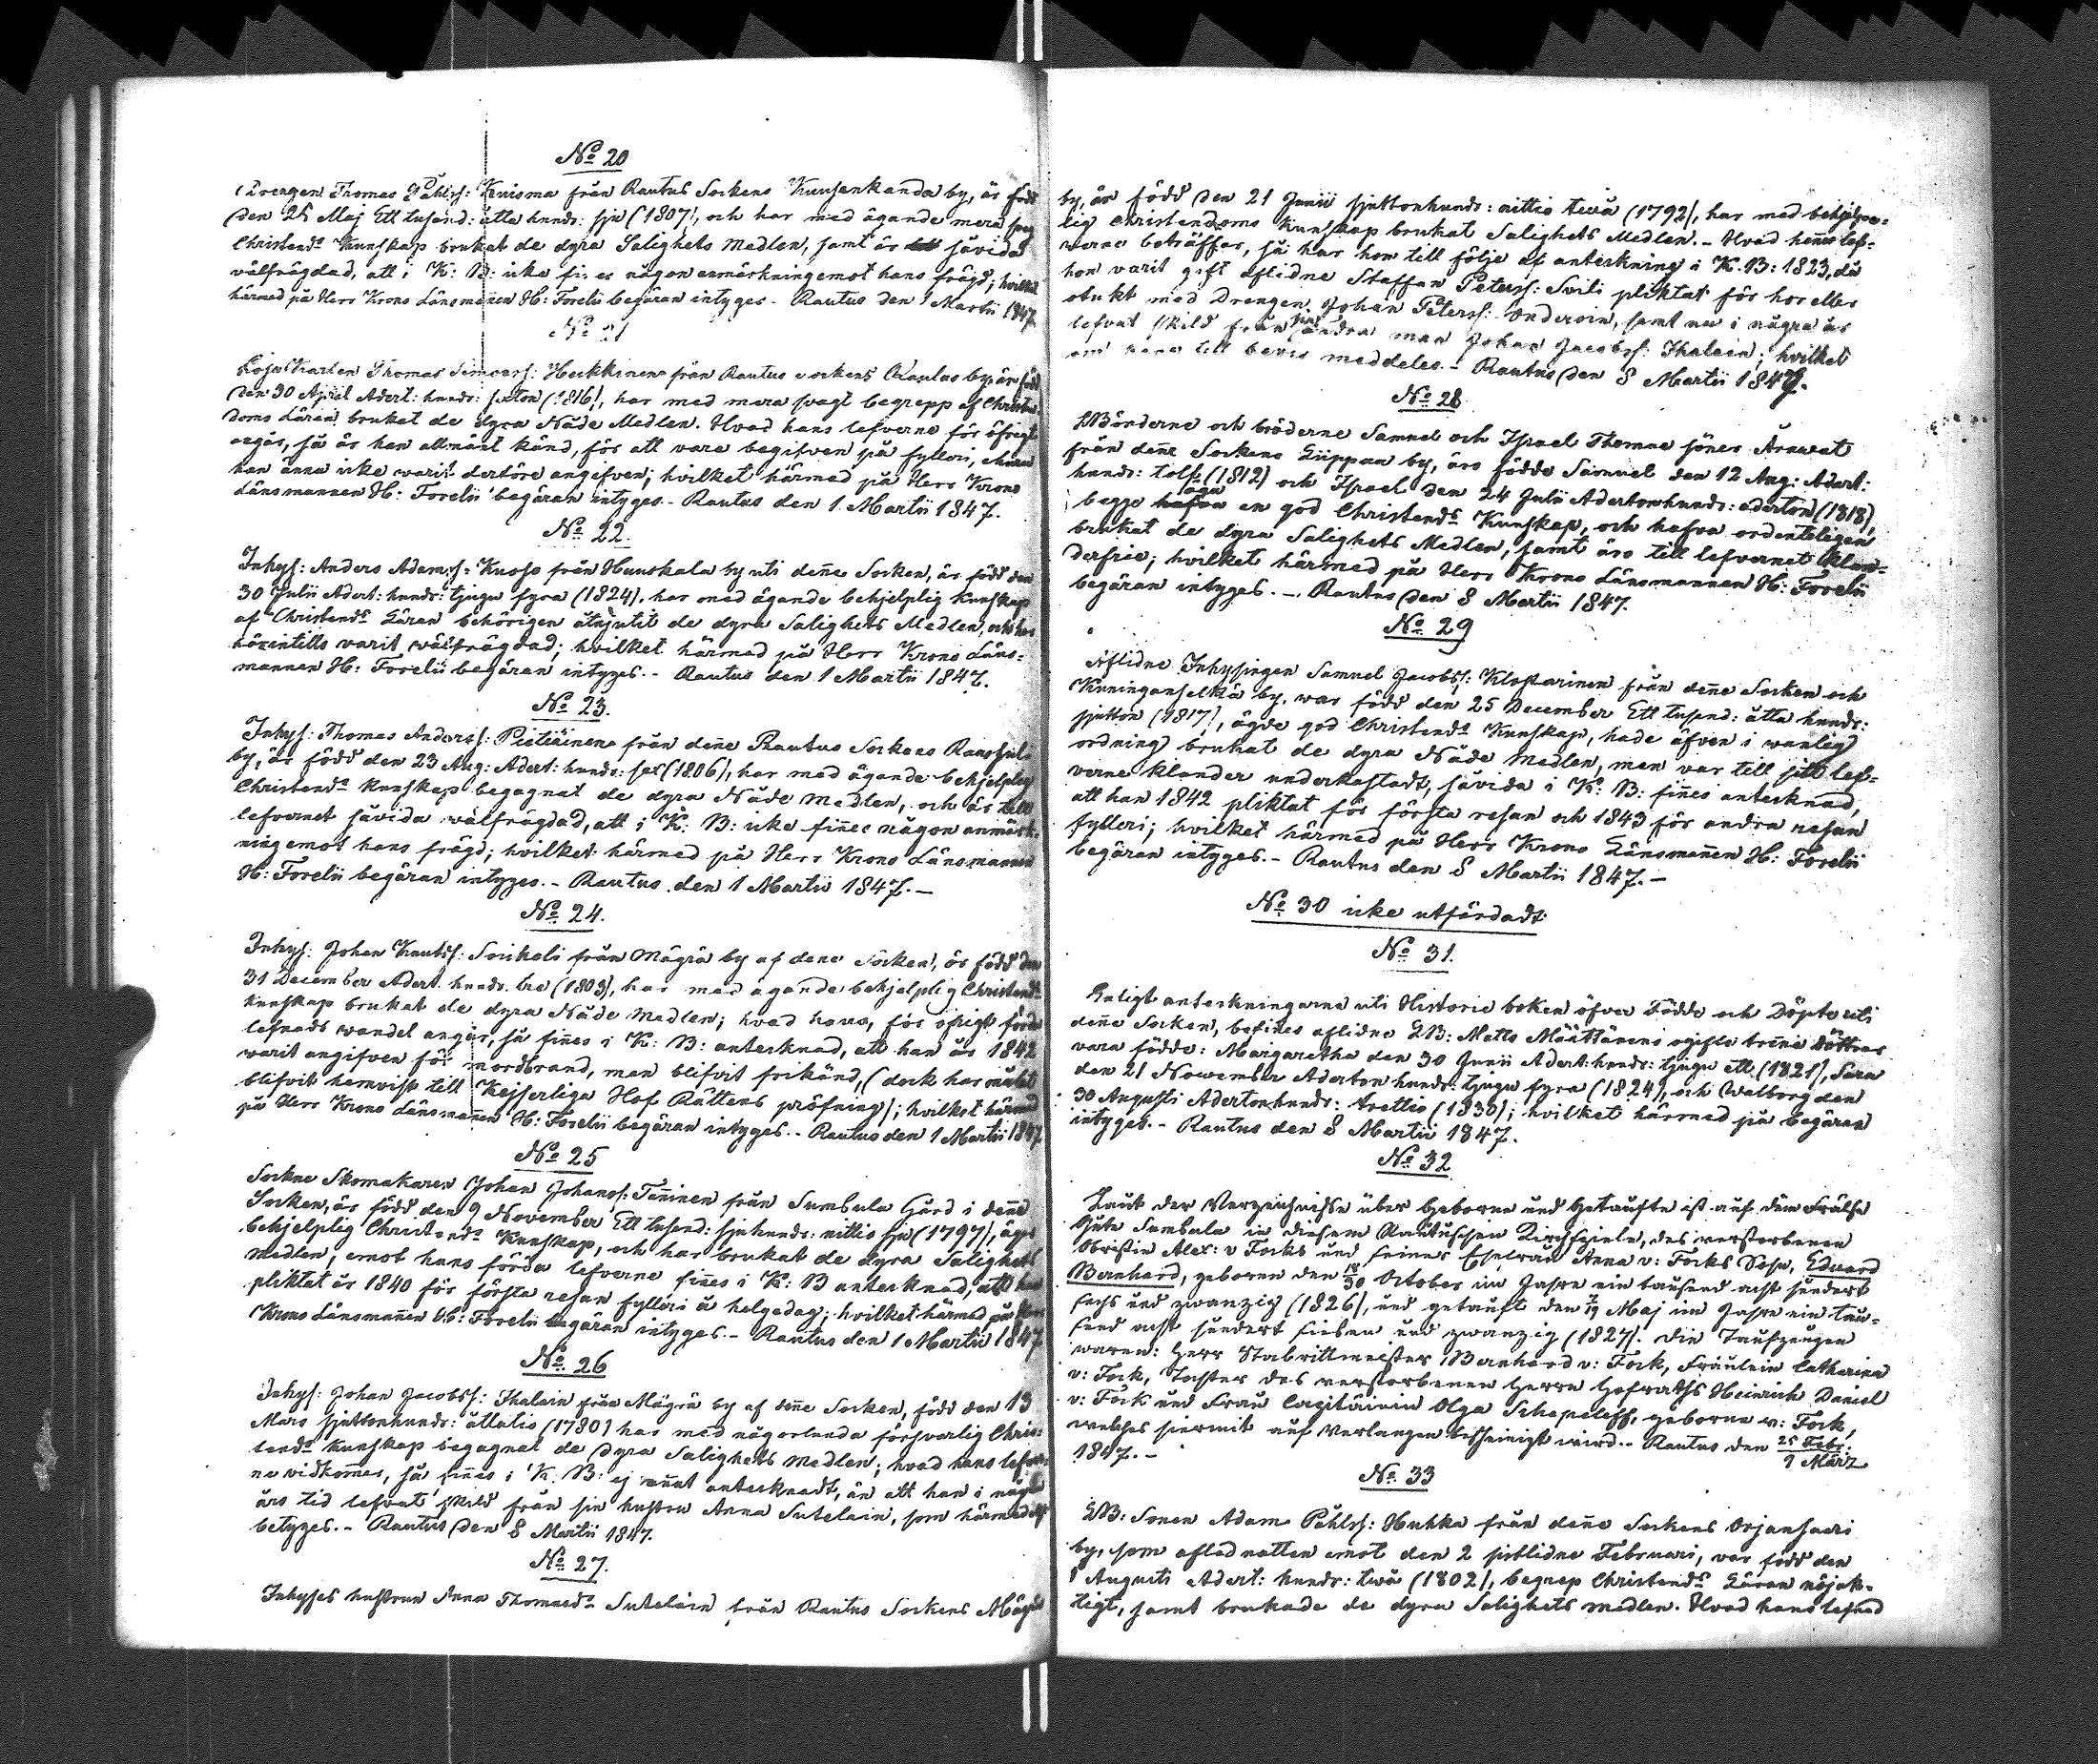 No 20
Drengen Thomas Påhlss: Kuisma från Rautus Sockens Kuusenkanda by, är född
den 25 Maj Ett tusend: åtta hundr: sju (1807), och har med ägande mera svag
Christends Kunskap brukat de dyra Salighets Medlen, samt är såvida
välfrägdad, att i K: B: icke fines någon anmärkning emot hans frägd; hvilket
härmed på Herr Krono Länsmannen H: Forelii begäran intyges. - Rautus den 1 Martii 1847.
No 21
Lösa Karlen Thomas Simonss: Heikkinen från Rautus Sockens Rautus by, är född
den 30 April Adert: hundr: sexton (1816), har med mera svagt begrepp af Christen-
doms Läran brukat de dyra Nåde Medlen. Hvad hans lefverne för öfrigt
angår, så är han allmänt känd, för att vara begifven på fylleri, ehuru
han ännu icke warit derföre angifven; hvilket härmed på Herr Krono
Länsmannen H: Forelii begäran intyges. - Rautus den 1 Martii 1847.
No 22.
Inhys: Anders Adamss: Kusso från Huuskala by uti denne Socken, är född den
30 Julii Adert: hundr: tjugu fyra (1824), har med ägande behjelplig Kunskap
af Christends Läran behörigen åtnjutit de dyra Salighets Medlen, och har
härintills warit wälfrägdad; hvilket härmed på Herr Krono Läns-
mannen H: Forelii begäran intyges. - Rautus den 1 Martii 1847.
No 23.
Inhys: Thomas Anderss: Pietiäinen från denne Rautus Sockens
by, är född den 23 Aug: Adert: hundr: sex (1806), har med ägande behjelplig
Christends Kunskap begagnat de dyra Nåde Medlen, och är till
lefvernet såvida wälfrägdad, att i K: B: icke finnes någon anmärk-
ning emot hans frägd; hvilket härmed på Herr Krono Länsmannen
H: Forelii begäran intyges. - Rautus den 1 Martii 1847. -
No 24.
Inhys: Johan Knutss: Soikeli från Mägrä by af denne Socken, är född den
31 December Adert. hundr. tre (1803), har med ägande behjelplig Christends
Kunskap brukat de dyra Nåde Medlen; hvad hans, för öfrigt förda
lefnads wandel angår, så finnes i K: B: antecknad, att han år 1842
warit angifven för mordbrand, men blifvit frikänd, (dock har målet
blifvit hemvist till Kejserliga Hof Rättens pröfning); hvilket härmed
på Herr Krono Länsmannen H: Forelii begäran intyges. - Rautus den 1 Martii 1847
No 25
Sockne Skomakaren Johan Johanss: Tanninen från Sumbula Gård i denne
Socken, är född den 9 November Ett tusend: sjuhundr: nittio sju (1797), äger
behjelplig Christends Kunskap, och har brukat de dyra Salighets
Medlen, emot hans förda lefverne finnes i K: B antecknad, att han
pliktat år 1840 för första resan fylleri å helgedag; hvilket härmed på Herr
Krono Länsmannen H: Forelii begäran intyges. - Rautus den 1 Martii 1847
No 26
Inhys: Johan Jacobss: Ihalain från Mägrä by af denne Socken, född den 13
Mars sjuttonhundr: åttatio (1780) har med någorlunda försvarlig Chris-
tends Kunskap begagnat de dyra Salighets medlen; hvad hans lefver-
ne widkommer, så finnes i K. B: ej annat antecknadt, än att han i några
års tid lefvat skild från sin hustru Anna Sutelain, som härmedelst
betyges. - Rautus den 8 Martii 1847.
No 27.
Inhyses hustrun Anna Thomaedr Sutelain från Rautus Sockens Mägrä
by, är född den 21 Junii sjuttonhundr: nittio twå (1792), har med behjelp-
lig Christendoms Kunskap brukat Salighets Medlen. - Hvad hennes lef-
verne beträffar, så har hon till följe af anteckning i K. B: 1823, då
hon varit gift aflidne Staffan Peterss: Svili pliktat för hor eller
otukt med Drengen Johan Peterss: Ondersin, samt nu i några år
lefvat skild från sin andra man Johan Jacobss: Ihalain; hvilket
till bevis meddeles. - Rautus den 8 Martii 1847.
No 28
Bönderne och bröderne Samuel och Israel Thomae söner Ärrawat
från denne Sockens Liippua by, äro födde Samuel den 12 Aug: Adert:
hundr: tolf (1812) och Israel den 24 Julii Adertonhundr: aderton (1818),
begge äga en god Christends Kunskap, och hafva ordenteligen
brukat de dyra Salighets Medlen, samt äro till lefvernet kland-
derfrie; hvilket härmed på Herr Krono Länsmannen H: Forelii
begäran intyges. - Rautus den 8 Martii 1847.
No 29
Aflidne Inhysingen Samuel Jacobss: Kloparinen från denne Socken och
Kuninganselkä by, war född den 25 December Ett tusend: åtta hundr:
sjutton (1817), ägde god Christends Kunskap, hade äfven i wanlig
ordning brukat de dyra Nåde Medlen, men var till sitt lef-
verne klander underkastadt, såvida i K: B: finnes antecknad,
att han 1842 pliktat för första resan och 1843 för andra resan
fylleri; hvilket härmed på Herr Krono Länsmannen H: Forelii
begäran intyges. - Rautus den 8 Martii 1847. -
No 30 icke utfärdadt.
No 31.
Enligt anteckningarne uti Historie boken öfver Födde och Döpte uti
denne Socken, befines aflidne LB: Matts Määttänens ogifte trenne Döttrar
vara födde: Margaretha den 30 Junii Adert: hundr: tjugu ett (1821), Sara
den 21 Nowember Aderton hundr: tjugu fyra (1824), och Walborg den
30 Augusti Adertonhundr: trettio (1830); hvilket härmed på begäran
intyges. - Rautus den 8 Martii 1847.
No 32
Laut der Verzeichnisse über Geborne und Getaufte ist auf dem Frälse
Gute Sumbula in diesem Rautuschen Kirchspiele, des verstorbenen
Obristin Alex: v Focks und seiner Ehefrau Anna v: Focks Sohn, Eduard
Bernhard, geboren den 18/30 October im Jahre ein tausend acht hundert
sechs und zwanzig (1826), und getauft den 7/19 Maj im Jahre ein tau-
send acht hundert sieben und zwanzig (1827). Die Taufzeugen
waren: Herr Stabrittmeister Bernhard v: Fock, Fräulein Catharina
v: Fock, Tochter des verstorbenen Herrn Hofraths Heinrich Daniel
v: Fock und Frau Capitäinin Olga Schepeleff, geborne v: Fock,
welches hiermit auf Verlangen bescheinigt wird. - Rautus den 25 Febr:/9 März
1847. -
No 33
LB: Sonen Adam Påhlss: Huhka från denne Sockens Orjansaari
by, som afled natten emot den 2 sistlidne Februari, var född den
1 Augusti Adert: hundr: twå (1802), begrep Christends Läran nöjak-
tigt, samt brukade de dyra Salighets medlen. Hvad hans lefnad